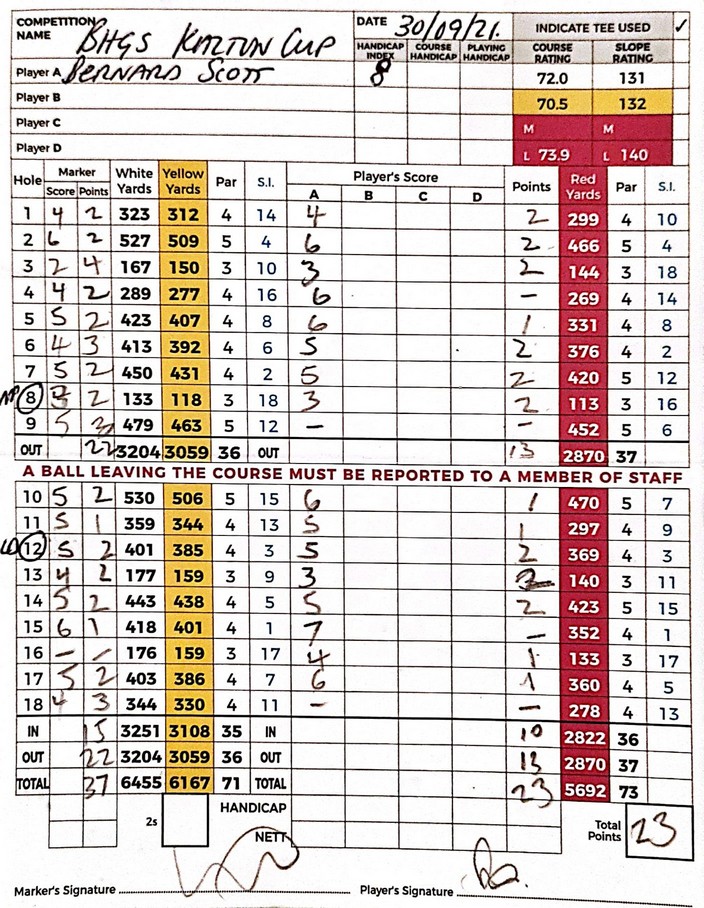 COMPETITION NAME BHGS KARTUN CUP DATE 30/09/21. INDICATE TEE USED ✓
HANDICAP INDEX COURSE HANDICAP PLAYING HANDICAP COURSE RATING SLOPE RATING
Player A BERNARD SCOTT 8 72.0 131
Player B 70.5 132
Player C M M
Player D L 73.9 L 140
Hole Marker White Yards Yellow Yards Par S.I. Player's Score Points Red Yards Par S.I.
Score Points A B C D
1 4 2 323 312 4 14 4 2 299 4 10
2 6 2 527 509 5 4 6 2 466 5 4
3 2 4 167 150 3 10 3 2 144 3 18
4 4 2 289 277 4 16 6 – 269 4 14
5 5 2 423 407 4 8 6 1 331 4 8
6 4 3 413 392 4 6 5 2 376 4 2
7 5 2 450 431 4 2 5 2 420 5 12
NP 8 3 2 133 118 3 18 3 2 113 3 16
9 5 3 479 463 5 12 – – 452 5 6
OUT 22 3204 3059 36 OUT 13 2870 37
A BALL LEAVING THE COURSE MUST BE REPORTED TO A MEMBER OF STAFF
10 5 2 530 506 5 15 6 1 470 5 7
11 5 1 359 344 4 13 5 1 297 4 9
LD 12 5 2 401 385 4 3 5 2 369 4 3
13 4 2 177 159 3 9 3 2 140 3 11
14 5 2 443 438 4 5 5 2 423 5 15
15 6 1 418 401 4 1 7 – 352 4 1
16 – – 176 159 3 17 4 1 133 3 17
17 5 2 403 386 4 7 6 1 360 4 5
18 4 3 344 330 4 11 – – 278 4 13
IN 15 3251 3108 35 IN 10 2822 36
OUT 22 3204 3059 36 OUT 13 2870 37
TOTAL 37 6455 6167 71 TOTAL 23 5692 73
2s HANDICAP Total Points 23
NETT
Marker's Signature Player's Signature